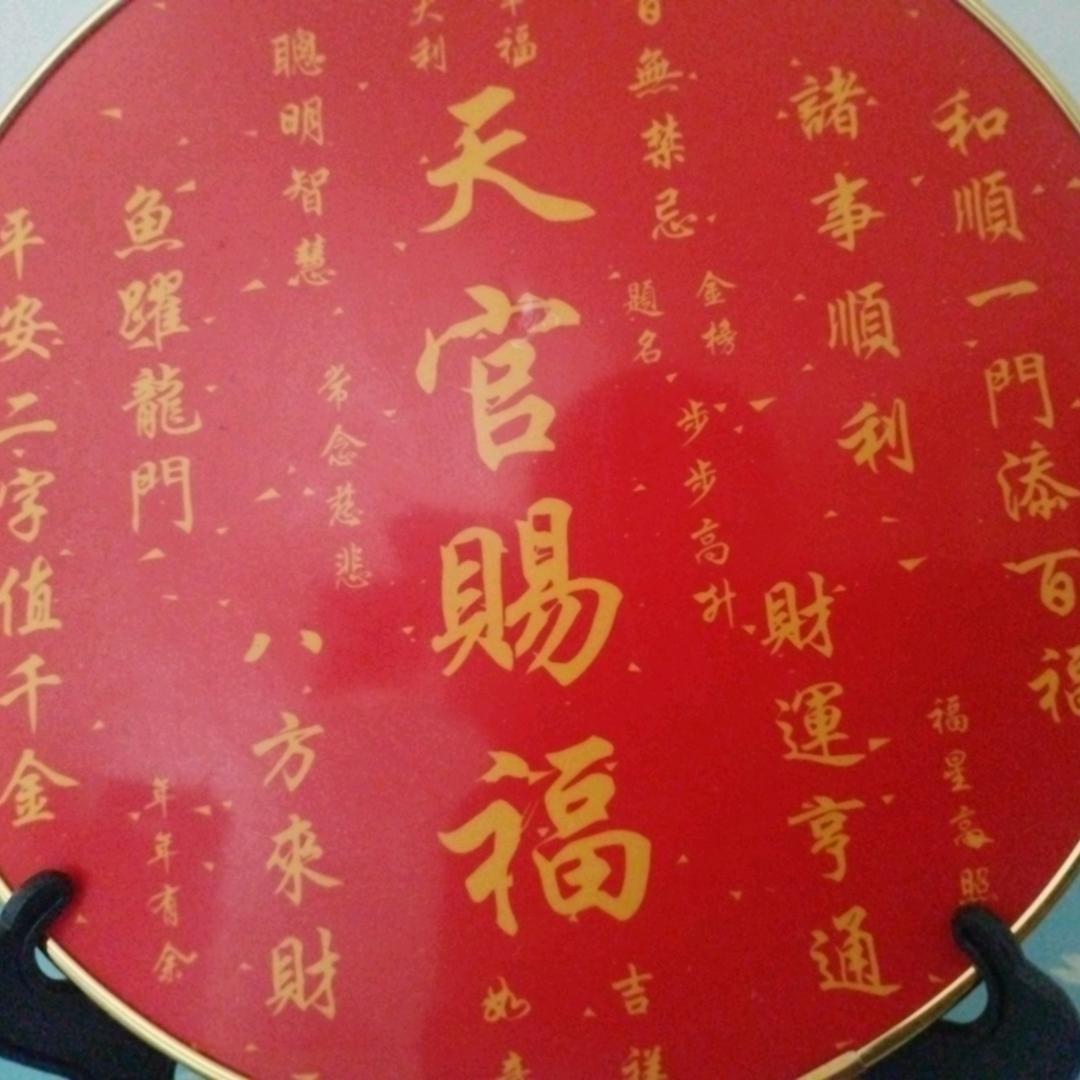 和順一門添百福
諸事順利
福星高照
財運亨通
百無禁忌
金榜
題名
步步高升
吉祥
天官賜福
福
大利
如
聰明智慧
常念慈悲
八方來財
魚躍龍門
年年有余
平安二字值千金